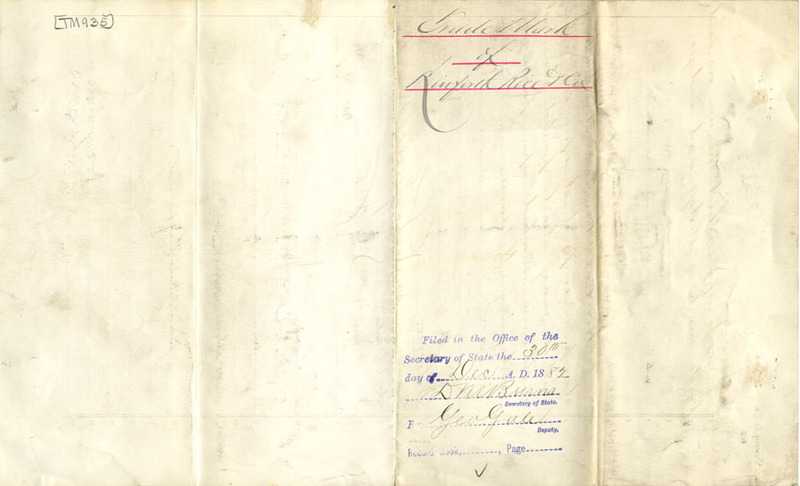 [TM935]
Trade Mark
of
Binforth Rice & Co
Filed in the Office of the
Secretary of State the 30th
day of Dec A. D. 1882
D M Burns
Secretary of State.
Geo
Deputy.
Record Book, Page